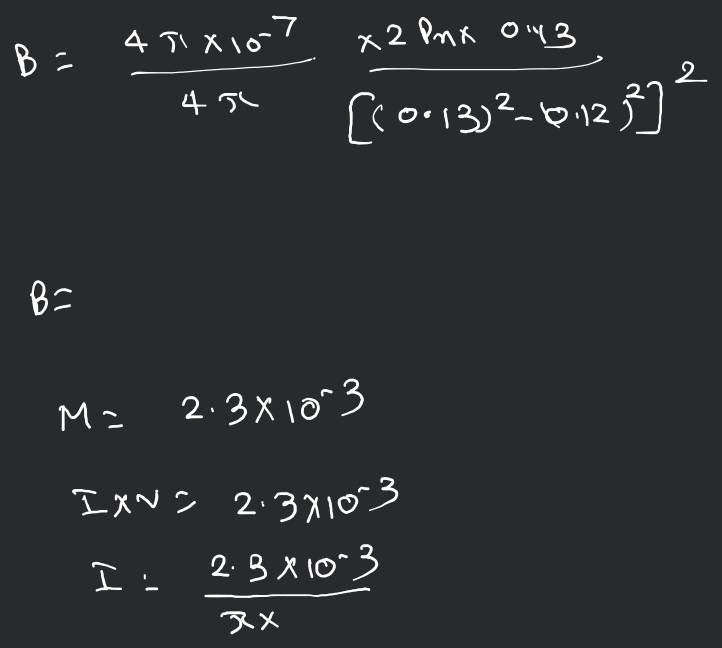 B = 4π×10^-7 / 4π × 2 Pm× 0.43 / [(0.13)^2 - 0.12)^2]^2
B =
M = 2.3×10^-3
I×V = 2.3×10^-3
I = 2.3×10^-3 / π×